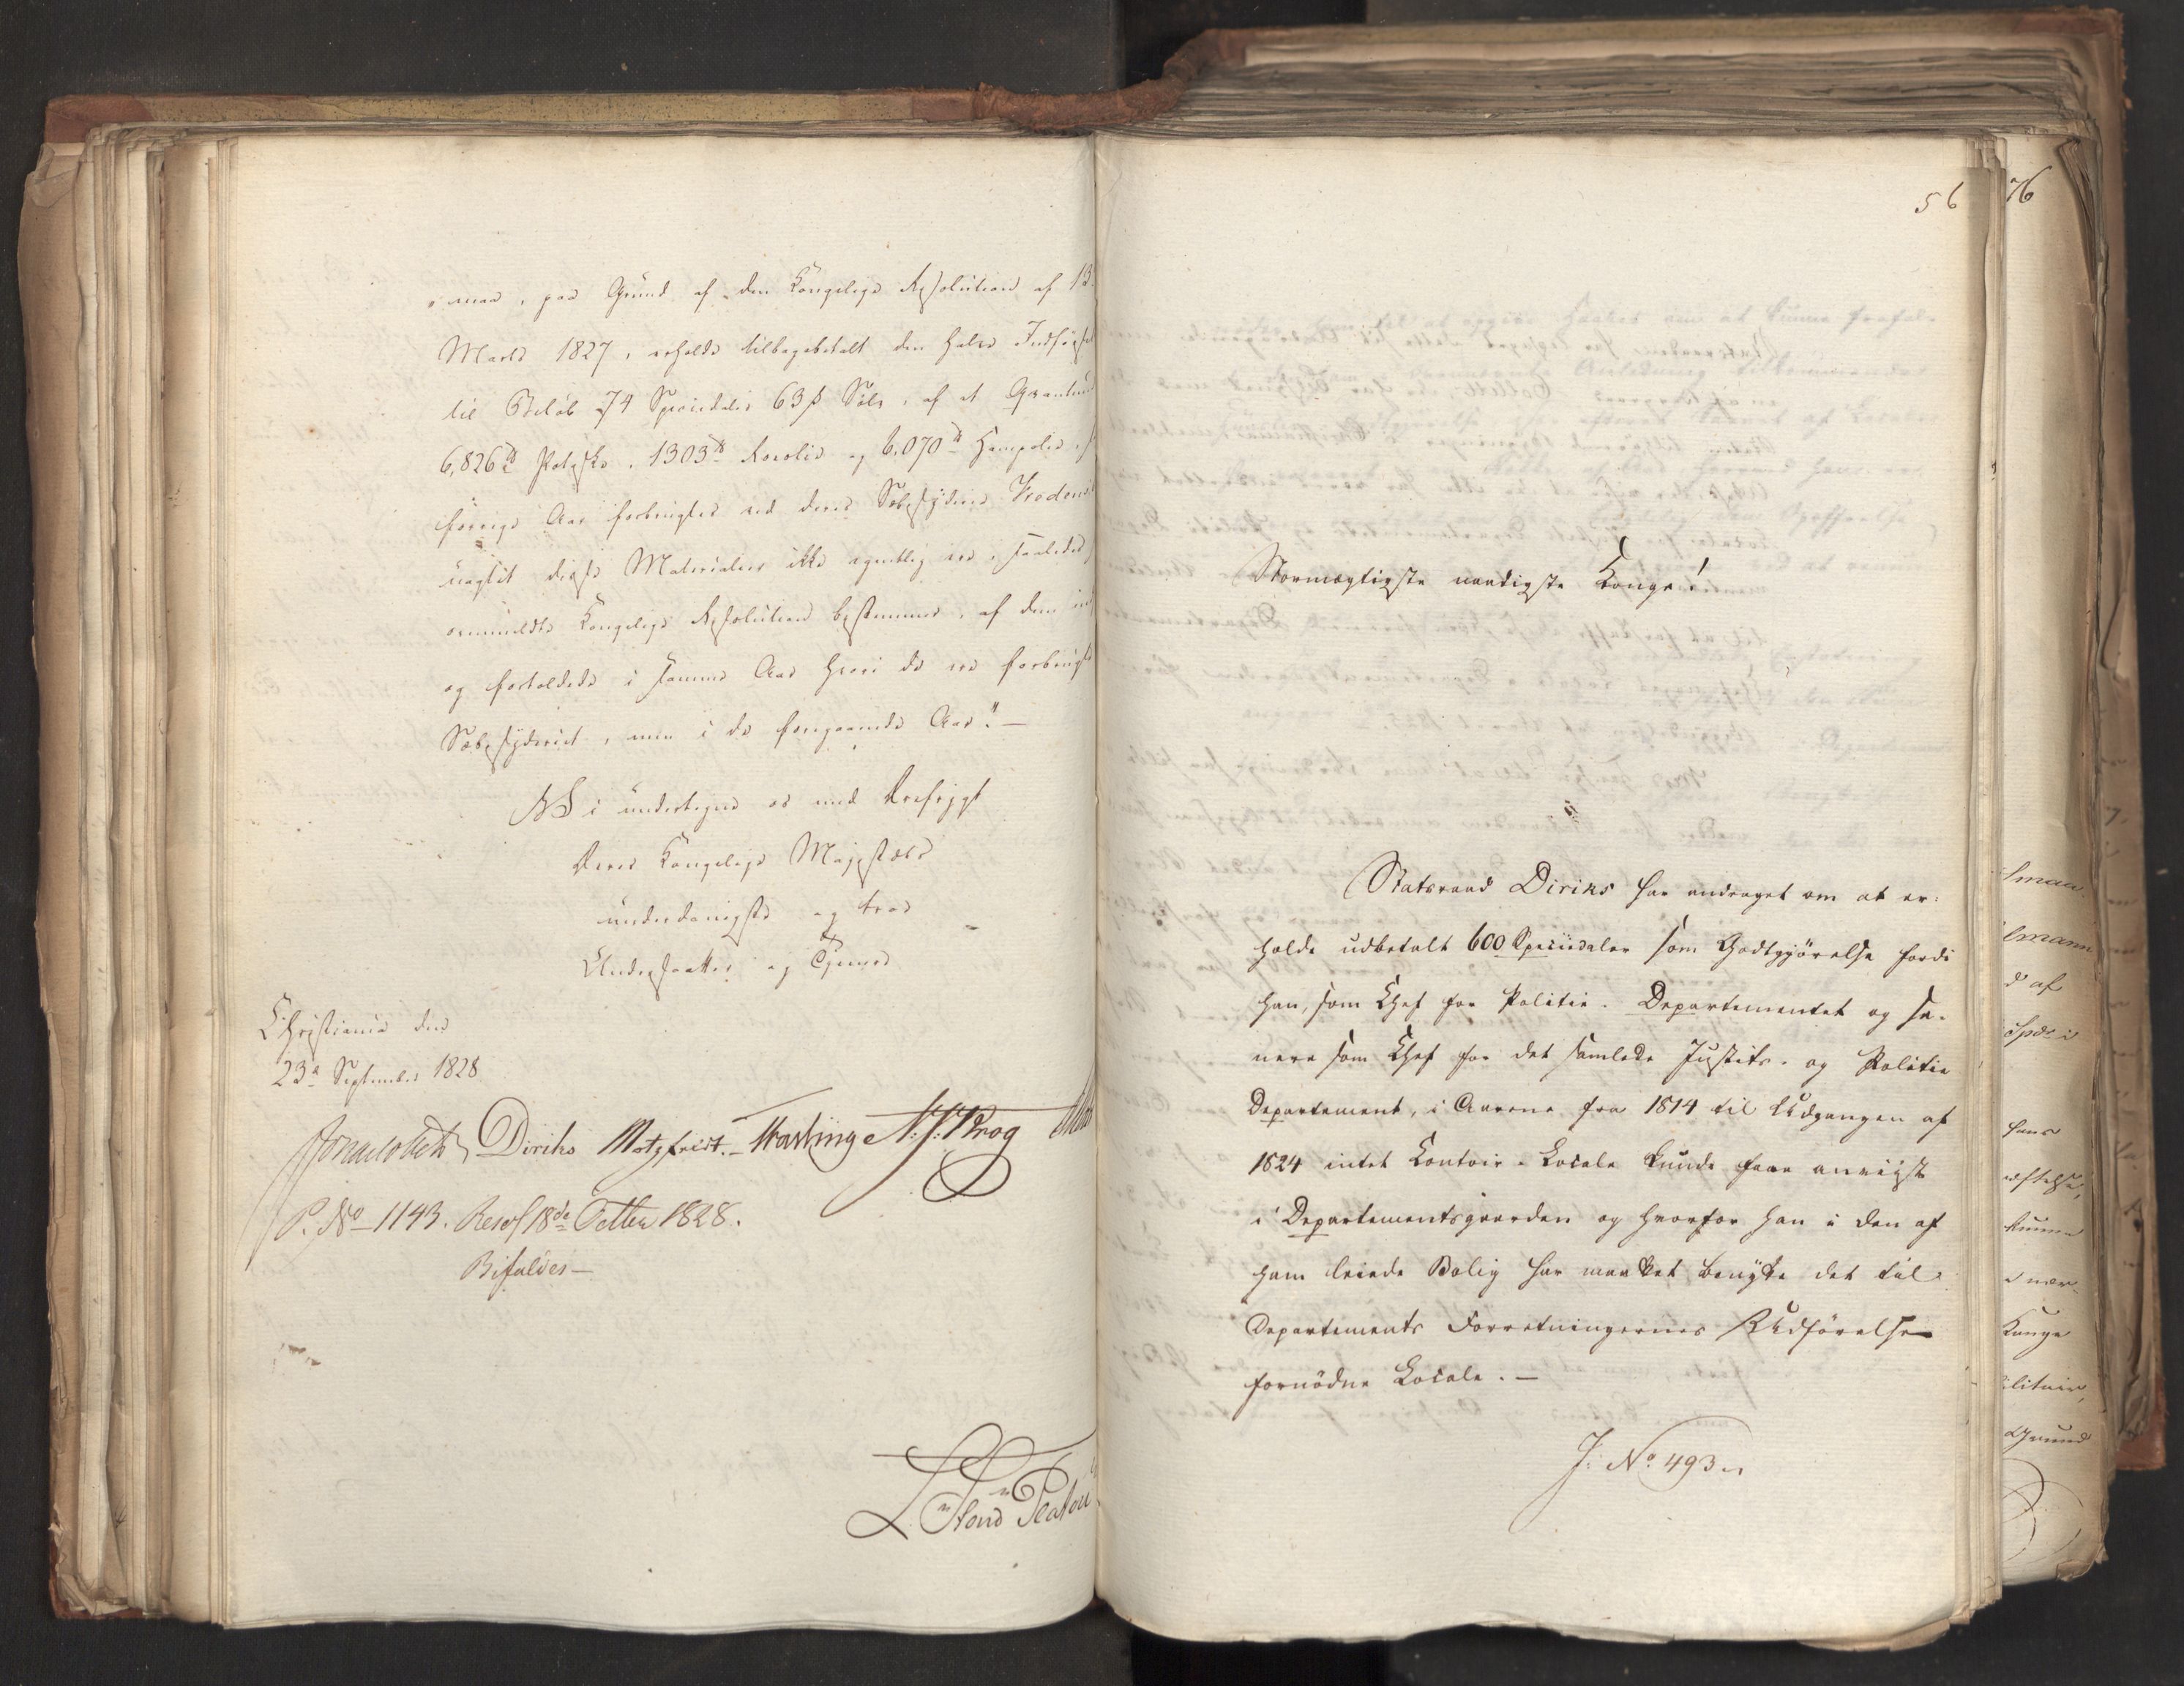 maa, paa Grund af den Kongelige Resolution af 13
Marts 1827, erholde tilbagebetalt den halve Indførsel
til Beløb 74 Speciedaler 63 s Sølv, af et Qvantum
6,826 ℔ Potaske, 1303 ℔ og 6,070 ℔ Hampolie
forrige Aar forbrugtes ved deres Sæbesyderie
uagtet disse Materialier ikke egentlig ere, saaledes
ommeldte Kongelige Resolution bestemmer, af dem
og fortoldede i samme Aar hvori de ere forbrugte
Sæbesyderiet, men i de foregaaende Aar". —
Vi undertegne os med Ærefrygt
Deres Kongelige Majestæts
underdanigste og troe
Undersaatter og Tjenere
Christiania den
23de September 1828
Jonas Collett Diriks Motzfeldt. Krog
P. No 1143. Resol 18de Octbr 1828.
Bifaldes —
56
76
Stormægtigste naadigste Konge!
Statsraad Diriks har andraget om at er-
holde udbetalt 600 Speciedaler som Godtgjörelse fordi
han, som Chef for Politie-Departementet og se-
nere som Chef for det samlede Justits- og Politie
Departement, i Aarene fra 1814 til Udgangen af
1824 intet Contoir-Locale kunde faae anviist
i Departementsgaarden og hvorfor han i den af
ham leiede Bolig har maattet benytte det til
Departements Forretningernes Udförelse
fornödne Locale. —
J: No 493